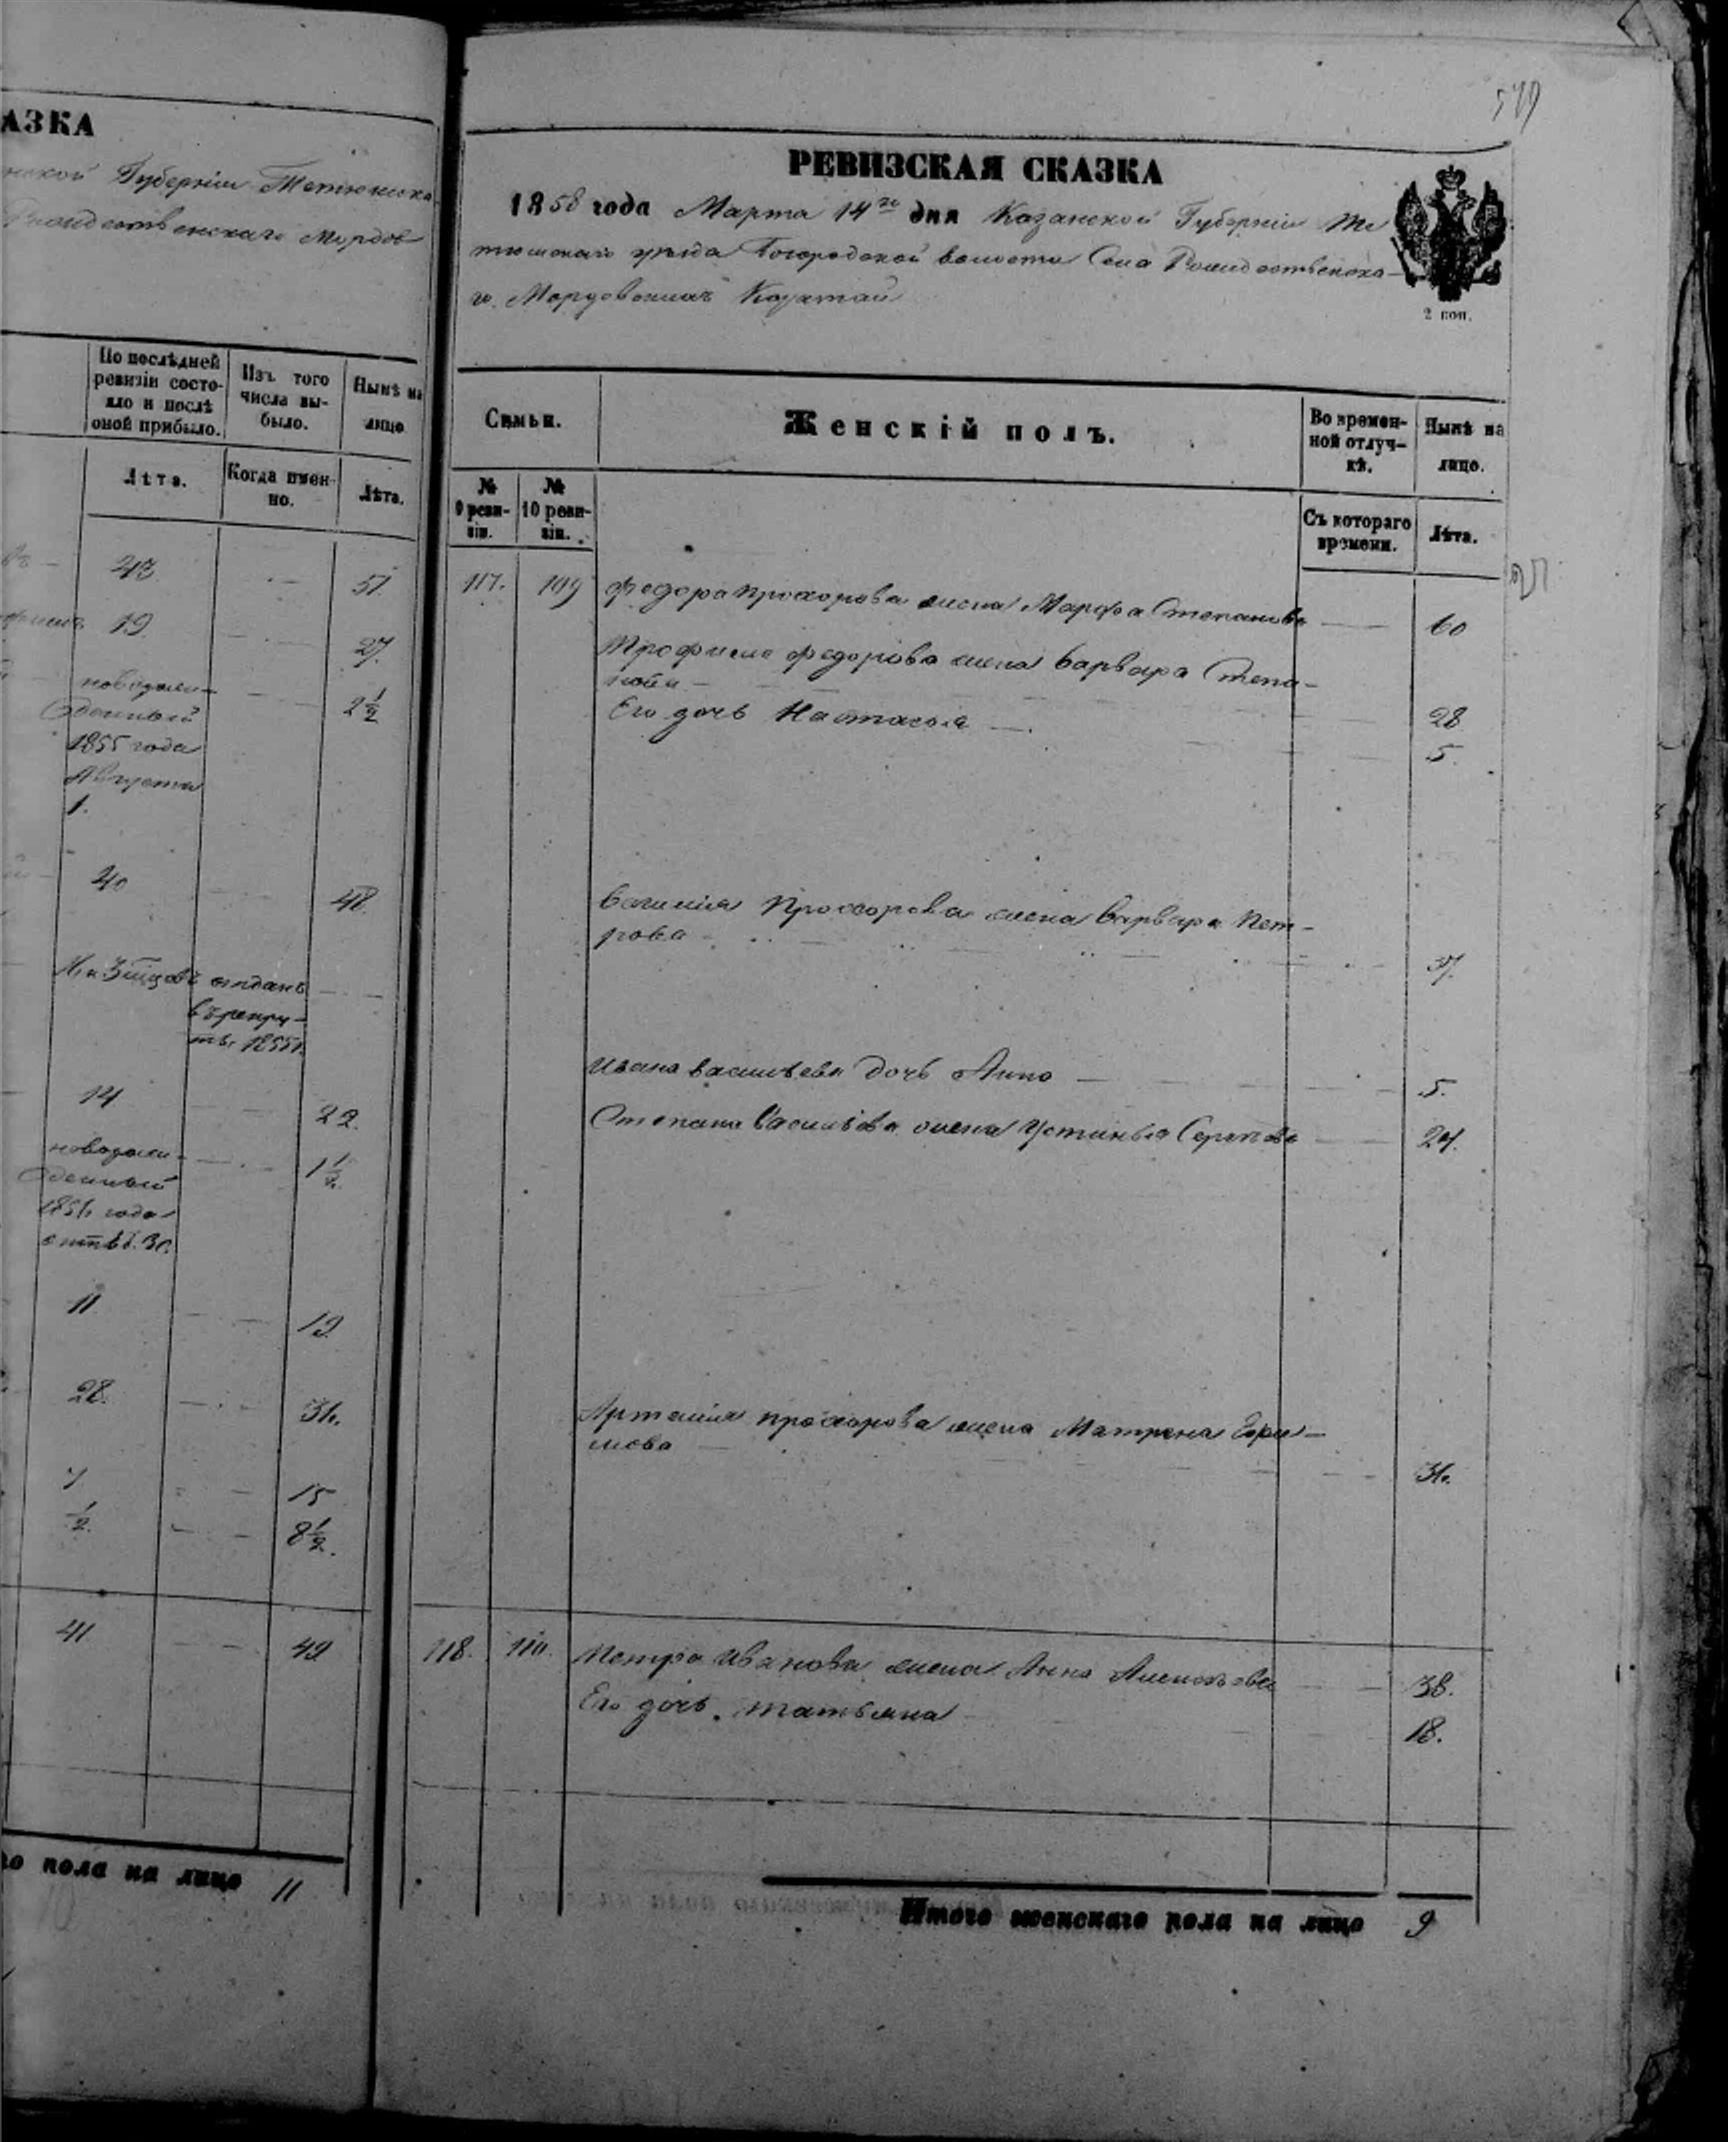 АЗКА
Губерніи Тетюшска
Рождественскаго Мордов-
По послѣдней
ревизіи состо-
яло и послѣ
оной прибыло.
Изъ того
числа вы-
было.
Нынѣ на
лицо
Лѣта.
Когда имен-
но.
Лѣта.
43 51
19 27.
новорож-
денный
1855 года
Августа
1.
2 1/2
40 48.
отданъ
въ рекру-
ты 1855
14 22.
новорож-
денный
года
1 1/2.
11 19
28. 36.
7 15
1/2. 8 1/2.
41 49
пола на лицо 11
579
РЕВИЗСКАЯ СКАЗКА
1858 года Марта 14го дня Казанской Губерніи Те
тюшскаго уѣзда Богородской волости Села Рождественска-
го Мордовскихъ Каратай
2 коп.
Семьи.
Женскій полъ.
Во времен-
ной отлуч-
кѣ.
Нынѣ на
лицо.
№
9 реви-
зіи.
№
10 реви-
зіи.
Съ котораго
времени.
Лѣта.
117. 109 Федора Прохорова жена Марфа Степанова 60
Трофима Федорова жена Варвара Степа-
нова 28
Его дочь Настасья 5.
Василія Прохорова жена Варвара Пет-
рова 37.
Ивана Васильева дочь Анна 5.
Степана Васильева жена Устинья Сергѣева 24.
Артемія Прохорова жена Матрена Ефи-
мова 36.
118. 110. Петра Иванова жена Анна Алексѣева 38.
Его дочь Татьяна 18.
Итого женскаго пола на лицо 9